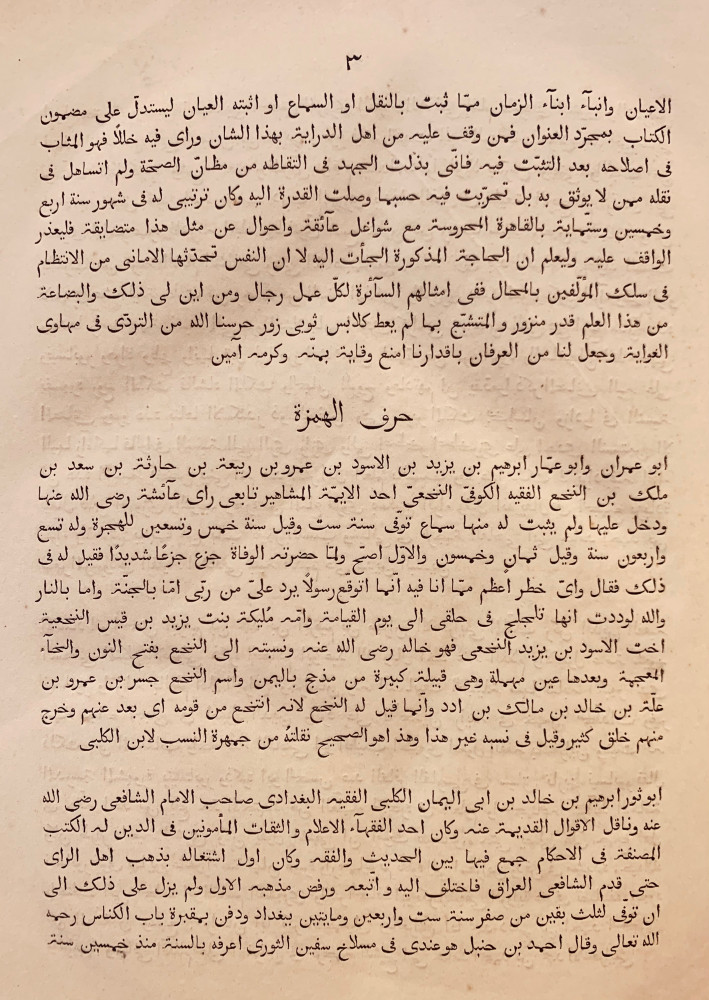 ٣
الاعيان وانبآء ابنآء الزمان ممّا ثبت بالنقل او السماع او اثبته العيان ليستدلّ على مضمون
الكتاب بمجرّد العنوان فمن وقف عليه من اهل الدراية بهذا الشان وراى فيه خللًا فهو المثاب
فى اصلاحه بعد التثبّت فيه فانّى بذلت الجهد فى التقاطه من مظانّ الصحّة ولم اتساهل فى
نقله ممن لا يوثق به بل تحرّيت فيه حسبما وصلت القدرة اليه وكان ترتيبى له فى شهور سنة اربع
وخمسين وستماية بالقاهرة المحروسة مع شواغل عآئقة واحوال عن مثل هذا متضايقة فليعذر
الواقف عليه وليعلم ان الحاجة المذكورة الجأت اليه لا ان النفس تحدّثها الامانى من الانتظام
فى سلك المؤلّفين بالمحال ففى امثالهم السآئرة لكلّ عمل رجال ومن اين لى ذلك والبضاعة
من هذا العلم قدر منزور والمتشبّع بما لم يعط كلابس ثوبى زور حرسنا الله من التردّى فى مهاوى
الغواية وجعل لنا من العرفان باقدارنا امنع وقاية بمنّه وكرمه آمين
حرف الهمزة
ابو عمران وابو عمّار ابرهيم بن يزيد بن الاسود بن عمرو بن ربيعة بن حارثة بن سعد بن
ملك بن النخع الفقيه الكوفىّ النخعىّ احد الايمّة المشاهير تابعى راى عآئشة رضى الله عنها
ودخل عليها ولم يثبت له منها سماع توفّى سنة ست وقيل سنة خمس وتسعين للهجرة وله تسع
واربعون سنة وقيل ثمان وخمسون والاوّل اصحّ ولمّا حضرته الوفاة جزع جزعًا شديدًا فقيل له فى
ذلك فقال واىّ خطر أعظم ممّا انا فيه انّما اتوقّع رسولًا يرد علىّ من ربّى امّا بالجنّة واما بالنار
والله لوددت انها تلجلج فى حلقى الى يوم القيامة وامّه مُليكة بنت يزيد بن قيس النخعية
اخت الاسود بن يزيد النخعى فهو خاله رضى الله عنه ونسبته الى النخع بفتح النون والخآء
المعجمة وبعدها عين مهملة وهى قبيلة كبيرة من مذحج باليمن واسم النخع جسر بن عمرو بن
علّة بن خالد بن مالك بن ادد وانّما قيل له النخع لانه انتخع من قومه اى بعد عنهم وخرج
منهم خلق كثير وقيل فى نسبه غير هذا وهذ اهو الصحيح نقلتهُ من جمهرة النسب لابن الكلبى
ابو ثور ابرهيم بن خالد بن ابى اليمان الكلبى الفقيه البغدادى صاحب الامام الشافعى رضى الله
عنه وناقل الاقوال القديمة عنه وكان احد الفقهآء الاعلام والثقات المأمونين فى الدين له الكتب
المصنفة فى الاحكام جمع فيها بين الحديث والفقه وكان اول اشتغاله بذهب اهل الراى
حتى قدم الشافعى العراق فاختلف اليه واتّبعه ورفض مذهبه الاول ولم يزل على ذلك الى
ان توفّى لثلث بقين من صفر سنة ست واربعين ومايتين ببغداد ودفن بمقبرة باب الكناس رحمه
الله تعالى وقال احمد بن حنبل هو عندى فى مسلاخ سفين الثورى اعرفه بالسنة منذ خمسين سنة